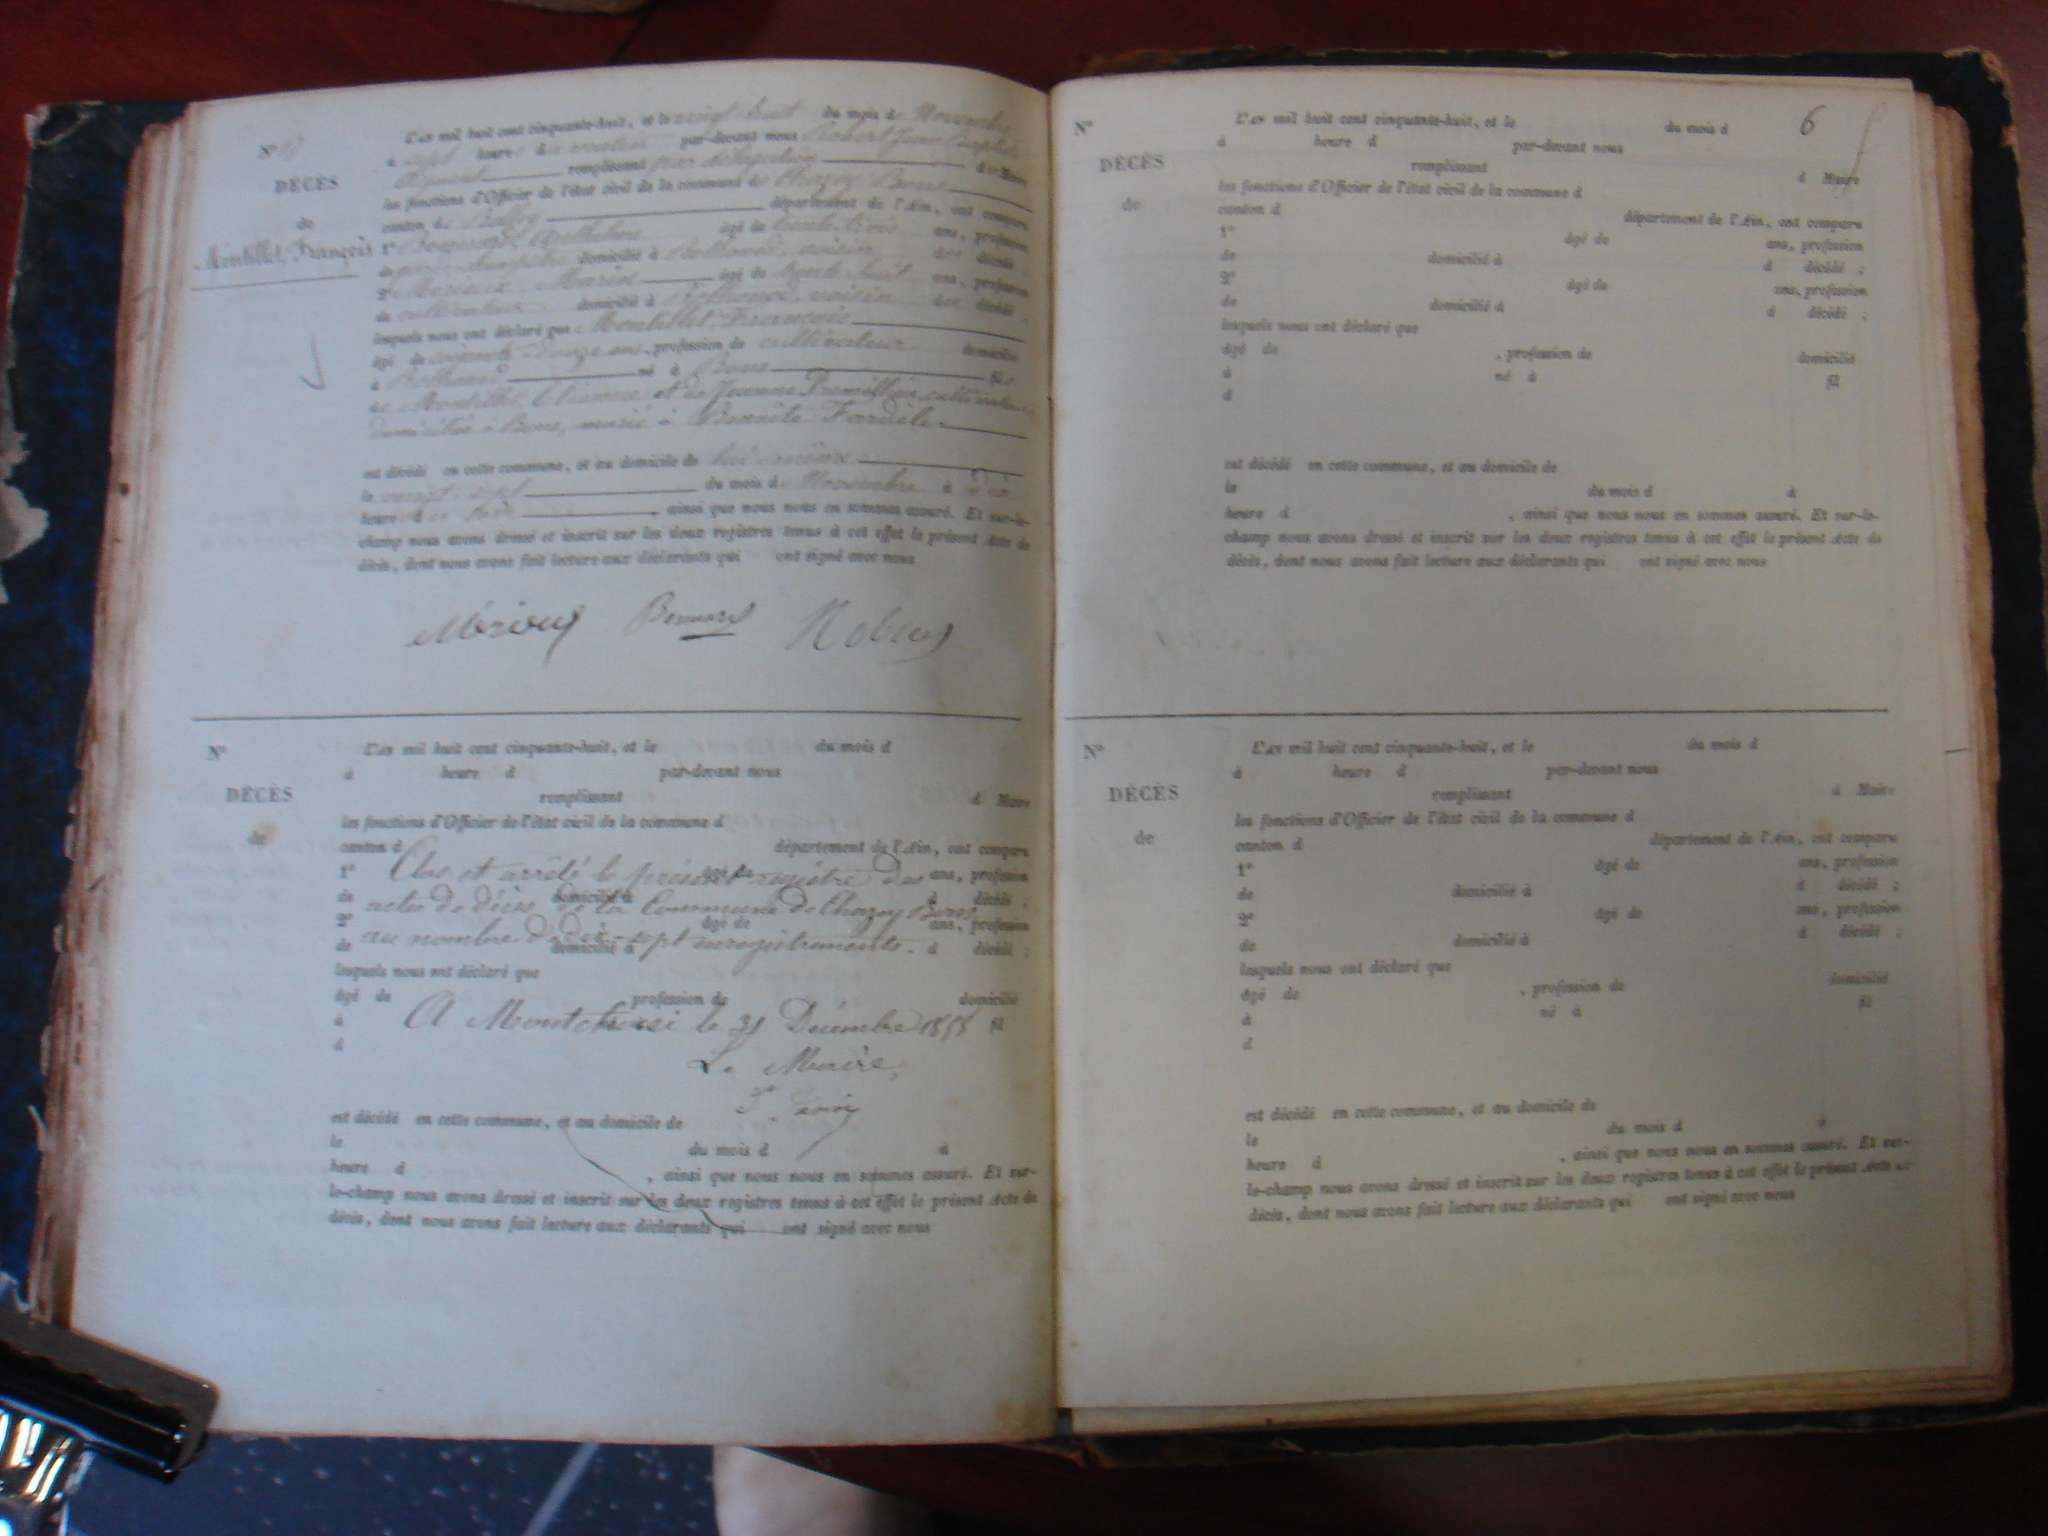 N° 17
DÉCÈS
de
Montillet, François
L'an mil huit cent cinquante-huit, et le vingt huit du mois de Novembre
à sept heures du matin par-devant nous Robert Jean Baptiste
Adjoint remplissant par délégation du Maire
les fonctions d'Officier de l'état civil de la commune de Chazey Bons
canton de Belley département de l'Ain, ont comparu
1° âgé de trente trois ans, profession
de domicilié à voisin du décédé ;
2° Marie âgé de trente huit ans, profession
de cultivateur domicilié à voisin du décédé ;
lesquels nous ont déclaré que Montillet François
âgé de ans, profession de cultivateur domicilié
à né à Bons fils
de Montillet, et de Jeanne
domiciliés à Bons, marié à Benoite
est décédé en cette commune, et au domicile de lui-même
le vingt-sept du mois de Novembre à
heure du soir , ainsi que nous nous en sommes assuré. Et sur-le-
champ nous avons dressé et inscrit sur les deux registres tenus à cet effet le présent Acte de
décès, dont nous avons fait lecture aux déclarants qui ont signé avec nous
N°
DÉCÈS
de
L'an mil huit cent cinquante-huit, et le du mois d
à heure d par-devant nous
remplissant d Maire
les fonctions d'Officier de l'état civil de la commune d
canton d département de l'Ain, ont comparu
1° âgé de ans, profession
de domicilié à d décédé ;
2° âgé de ans, profession
de domicilié à d décédé ;
Clos et arrêté le présent registre des
actes de décès de la Commune de Chazey Bons
au nombre de dix-sept enregistrements.
lesquels nous ont déclaré que
âgé de profession de domicilié
à fil
d
A le 31 Décembre 1858
Le Maire,
est décédé en cette commune, et au domicile de
le du mois d à
heure d , ainsi que nous nous en sommes assuré. Et sur-
le-champ nous avons dressé et inscrit sur les deux registres tenus à cet effet le présent Acte de
décès, dont nous avons fait lecture aux déclarants qui ont signé avec nous
6
N°
DÉCÈS
de
L'an mil huit cent cinquante-huit, et le du mois d
à heure d par-devant nous
remplissant d Maire
les fonctions d'Officier de l'état civil de la commune d
canton d département de l'Ain, ont comparu
1° âgé de ans, profession
de domicilié à d décédé ;
2° âgé de ans, profession
de domicilié à d décédé ;
lesquels nous ont déclaré que
âgé de , profession de domicilié
à né à fil
d
est décédé en cette commune, et au domicile de
le du mois d à
heure d , ainsi que nous nous en sommes assuré. Et sur-le-
champ nous avons dressé et inscrit sur les deux registres tenus à cet effet le présent Acte de
décès, dont nous avons fait lecture aux déclarants qui ont signé avec nous
N°
DÉCÈS
de
L'an mil huit cent cinquante-huit, et le du mois d
à heure d par-devant nous
remplissant d Maire
les fonctions d'Officier de l'état civil de la commune d
canton d département de l'Ain, ont comparu
1° âgé de ans, profession
de domicilié à d décédé ;
2° âgé de ans, profession
de domicilié à d décédé ;
lesquels nous ont déclaré que
âgé de , profession de domicilié
à né à fil
d
est décédé en cette commune, et au domicile de
le du mois d à
heure d , ainsi que nous nous en sommes assuré. Et sur-
le-champ nous avons dressé et inscrit sur les deux registres tenus à cet effet le présent Acte de
décès, dont nous avons fait lecture aux déclarants qui ont signé avec nous